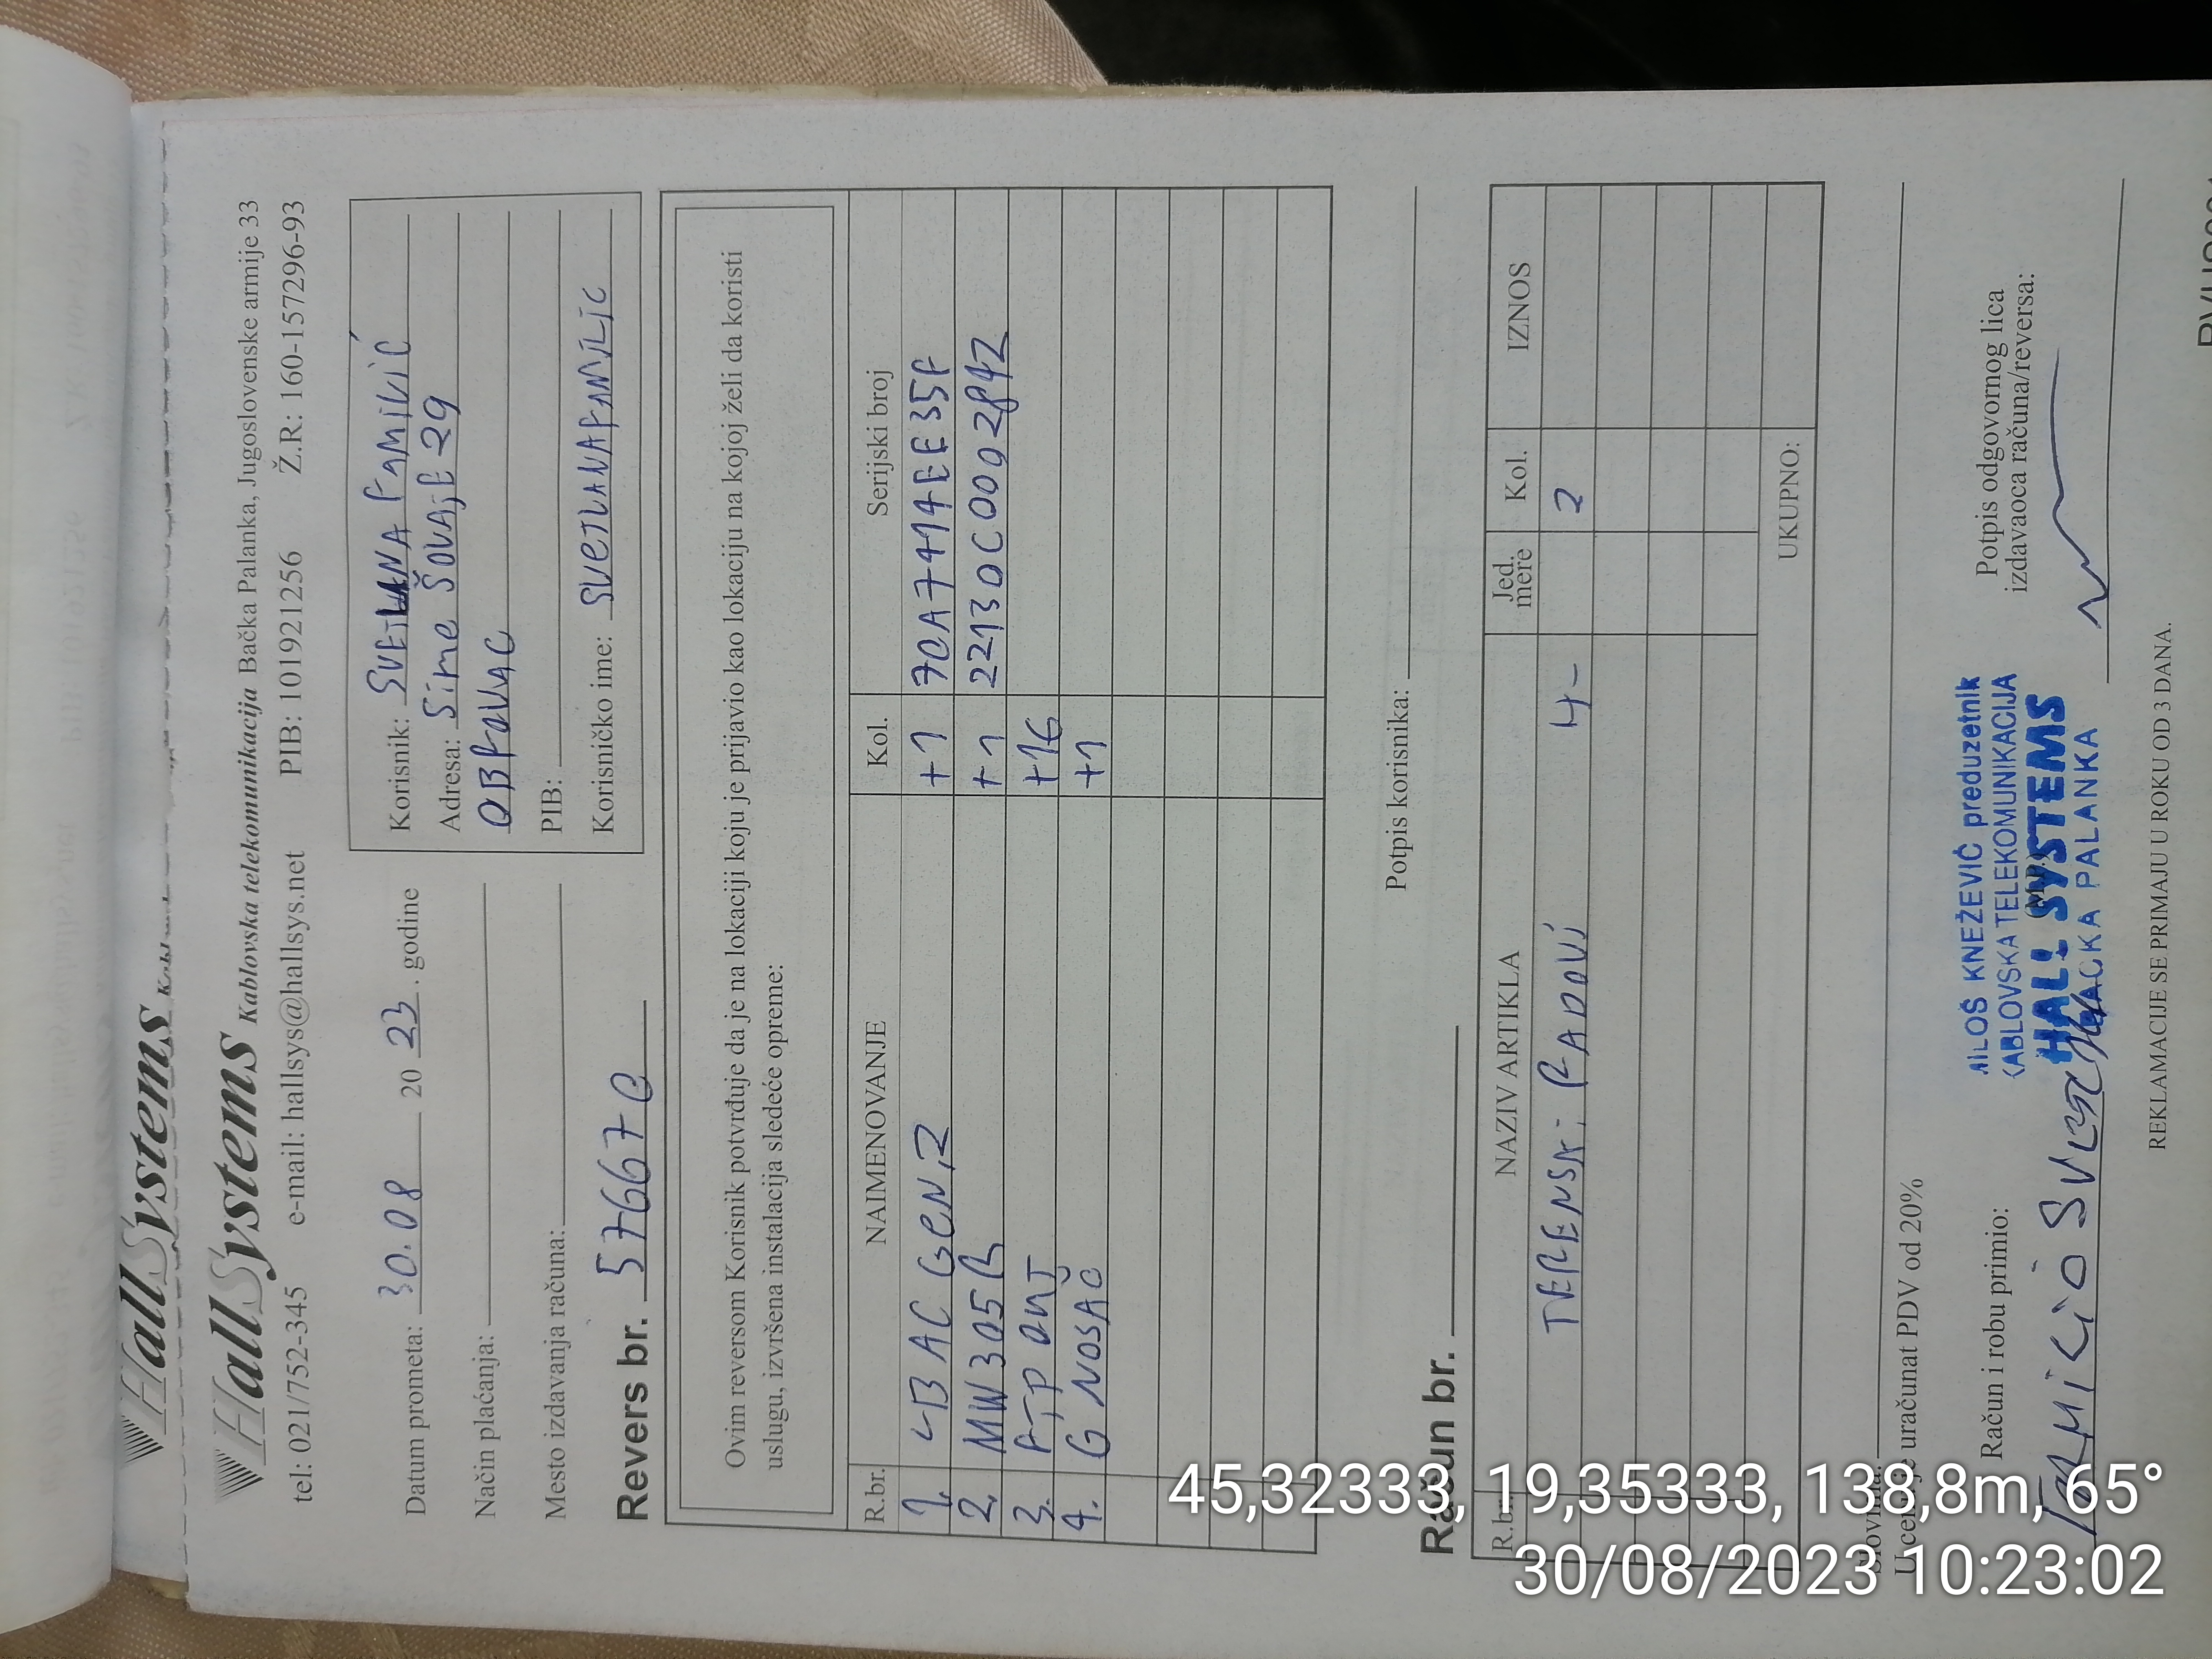 HallSystems
HallSystems Kablovska telekomunikacija Bačka Palanka, Jugoslovenske armije 33
tel: 021/752-345 e-mail: hallsys@hallsys.net PIB: 101921256 Ž.R.: 160-157296-93
Datum prometa: 30.08 20 23. godine
Način plaćanja:
Mesto izdavanja računa:
Korisnik: SVETLANA RAMILIĆ
Adresa: Sime ŠOLAJE 29
OBROVAC
PIB:
Korisničko ime: SVETLANARAMILIC
Revers br. 57667 O
Ovim reversom Korisnik potvrđuje da je na lokaciji koju je prijavio kao lokaciju na kojoj želi da koristi
uslugu, izvršena instalacija sledeće opreme:
R.br. NAIMENOVANJE Kol. Serijski broj
1. LB AC GEN2 +1 70A7414EE35F
2. MW305R +1 22130C0002842
3. FTP OUT +16
4. G NOSAČ +1
Potpis korisnika:
Račun br.
R.br. NAZIV ARTIKLA Jed. mere Kol. IZNOS
TERENSKi RADOVi 4- 2
UKUPNO:
Slovima:
U cenu je uračunat PDV od 20%
Račun i robu primio:
Potpis odgovornog lica
izdavaoca računa/reversa:
MILOŠ KNEŽEVIĆ preduzetnik
KABLOVSKA TELEKOMUNIKACIJA
HALL SYSTEMS
BAČKA PALANKA
(M.P.)
REKLAMACIJE SE PRIMAJU U ROKU OD 3 DANA.
45,32333, 19,35333, 138,8m, 65°
30/08/2023 10:23:02